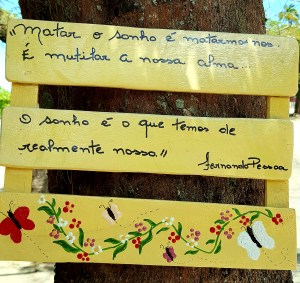 "Matar o sonho é matarmo-nos.
É mutilar a nossa alma...
O sonho é o que temos de
realmente nosso."
Fernando Pessoa